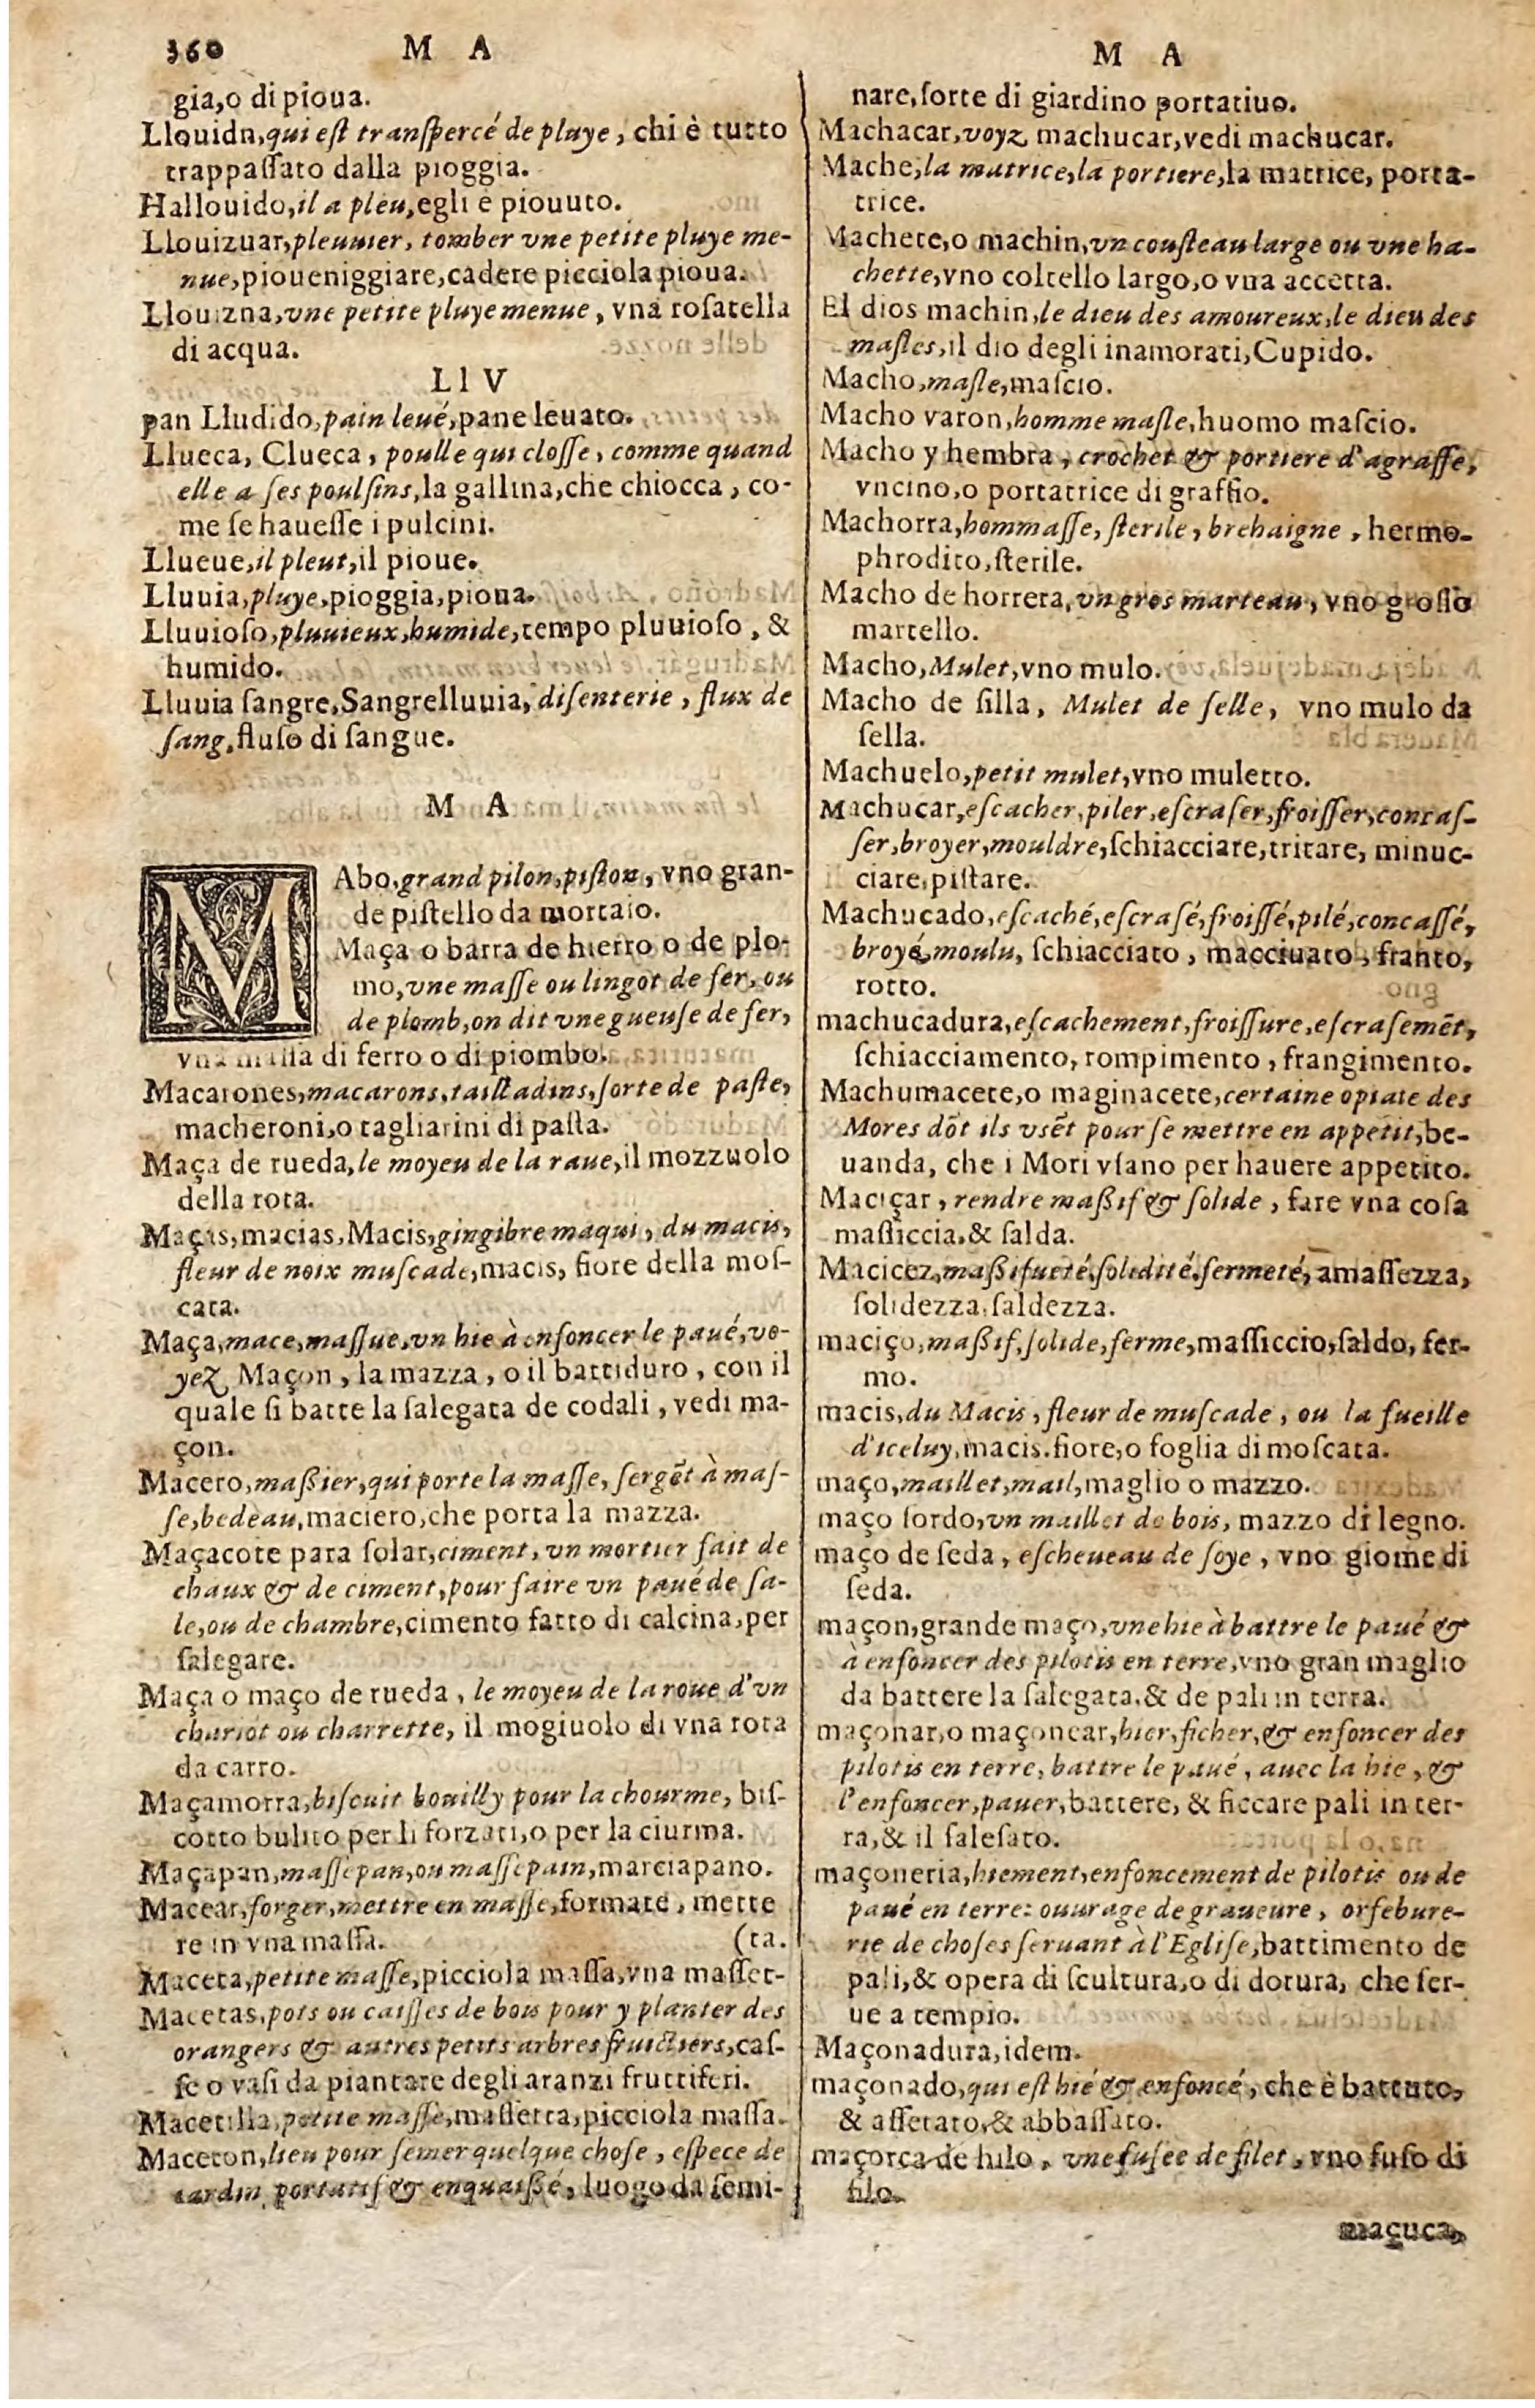 360 M A
gia,o di pioua.
Llouido,qui eſt tranſpercé de pluye, chi è tutto
trappaſſato dalla pioggia.
Hallouido,il a pleu,egli e piouuto.
Llouizuar,pleuuier, tomber vne petite pluye me-
nue,pioueniggiare,cadere picciola pioua.
Llouizna,vne petite pluye menue, vna roſatella
di acqua.
Ll V
pan Lludido,pain leué,pane leuato.
Llueca, Clueca, poulle qui cloſſe, comme quand
elle a ſes poulſins,la gallina,che chiocca, co-
me ſe haueſſe i pulcini.
Llueue,il pleut,il pioue.
Lluuia,pluye,pioggia,pioua.
Lluuioſo,pluuieux,humide,tempo pluuioſo, &
humido.
Lluuia ſangre,Sangrelluuia, diſenterie, flux de
ſang,fluſo di ſangue.
M A
MAbo,grand pilon,piſton, vno gran-
de piſtello da mortaio.
Maça o barra de hierro o de plo-
mo,vne maſſe ou lingot de fer, ou
de plomb,on dit vne gueuſe de fer,
vna maſſa di ferro o di piombo.
Macarones,macarons,tailladins,ſorte de paſte,
macheroni,o tagliarini di paſta.
Maça de rueda,le moyeu de la raue,il mozzuolo
della rota.
Maças,macias,Macis,gingibre maqui, du macis,
fleur de noix muſcade,macis, fiore della moſ-
cata.
Maça,mace,maſſue,vn hie à enfoncer le paué,vo-
yez Maçon, la mazza, o il battiduro, con il
quale ſi batte la ſalegata de codali, vedi ma-
çon.
Macero,maßier,qui porte la maſſe, ſergẽt à maſ-
ſe,bedeau,maciero,che porta la mazza.
Maçacote para ſolar,ciment, vn mortier fait de
chaux & de ciment,pour faire vn paué de ſa-
le,ou de chambre,cimento fatto di calcina,per
ſalegare.
Maça o maço de rueda, le moyeu de la roue d'vn
chariot ou charrette, il mogiuolo di vna rota
da carro.
Maçamorra,biſcuit bouilly pour la chourme, biſ-
cotto bulito per li forzati,o per la ciurma.
Maçapan,maſſepan,ou maſſepain,marciapano.
Macear,forger,mettre en maſſe,formate, mette
re in vna maſſa. (ta.
Maceta,petite maſſe,picciola maſſa,vna maſſet-
Macetas,pots ou caiſſes de bois pour y planter des
orangers & autres petits arbres fruictiers,caſ-
ſe o vaſi da piantare degli aranzi fruttiferi.
Macetilla,petite maſſe,maſſetta,picciola maſſa.
Maceton,lieu pour ſemer quelque choſe, eſpece de
iardin portatif & enquaißé, luogo da ſemi-
M A
nare,ſorte di giardino portatiuo.
Machacar,voyz machucar,vedi machucar.
Mache,la matrice,la portiere,la matrice, porta-
trice.
Machete,o machin,vn couſteau large ou vne ha-
chette,vno coltello largo,o vna accetta.
El dios machin,le dieu des amoureux,le dieu des
maſles,il dio degli inamorati,Cupido.
Macho,maſle,maſcio.
Macho varon,homme maſle,huomo maſcio.
Macho y hembra, crochet & portiere d'agraffe,
vncino,o portatrice di graffio.
Machorra,hommaſſe, ſterile, brehaigne, hermo-
phrodito,ſterile.
Macho de horrera,vn gros marteau, vno groſſo
martello.
Macho,Mulet,vno mulo.
Macho de ſilla, Mulet de ſelle, vno mulo da
ſella.
Machuelo,petit mulet,vno muletto.
Machucar,eſcacher,piler,eſcraſer,froiſſer,concaſ-
ſer,broyer,mouldre,ſchiacciare,tritare, minuc-
ciare,piſtare.
Machucado,eſcaché,eſcraſé,froiſſé,pilé,concaſſé,
broyé,moulu, ſchiacciato, macciuato, franto,
rotto.
machucadura,eſcachement,froiſſure,eſcraſemẽt,
ſchiacciamento, rompimento, frangimento.
Machumacete,o maginacete,certaine opiate des
Mores dõt ils vſẽt pour ſe mettre en appetit,be-
uanda, che i Mori vſano per hauere appetito.
Maciçar, rendre maßif & ſolide, fare vna coſa
maſticcia,& ſalda.
Macicez,maßifueté,ſolidité,fermeté, amaſſezza,
ſolidezza,ſaldezza.
maciço,maßif,ſolide,ferme,maſſiccio,ſaldo, fer-
mo.
macis,du Macis, fleur de muſcade, ou la fueille
d'iceluy,macis.fiore,o foglia di moſcata.
maço,maillet,mail,maglio o mazzo.
maço ſordo,vn maillet de bois, mazzo di legno.
maço de ſeda, eſcheueau de ſoye, vno giome di
ſeda.
maçon,grande maço,vne hie à battre le paué &
à enfoncer des pilotis en terre,vno gran maglio
da battere la ſalegata,& de pali in terra.
maçonar,o maçonear,hier,ficher,& enfoncer des
pilotis en terre, battre le paué, auec la hie, &
l'enfoncer,pauer,battere, & ficcare pali in ter-
ra,& il saleſato.
maçoneria,hiement,enfoncement de pilotis ou de
paué en terre: ouurage de graueure, orfebure-
rie de choſes ſeruant à l'Egliſe,battimento de
pali,& opera di ſcultura,o di dotura, che ſer-
ue a tempio.
Maçonadura,idem.
maçonado,qui eſt hié & enfoncé, che è battuto,
& aſſetato,& abbaſſato.
maçorca de hilo, vne fuſee de filet, vno fuſo di
filo.
maçuca,